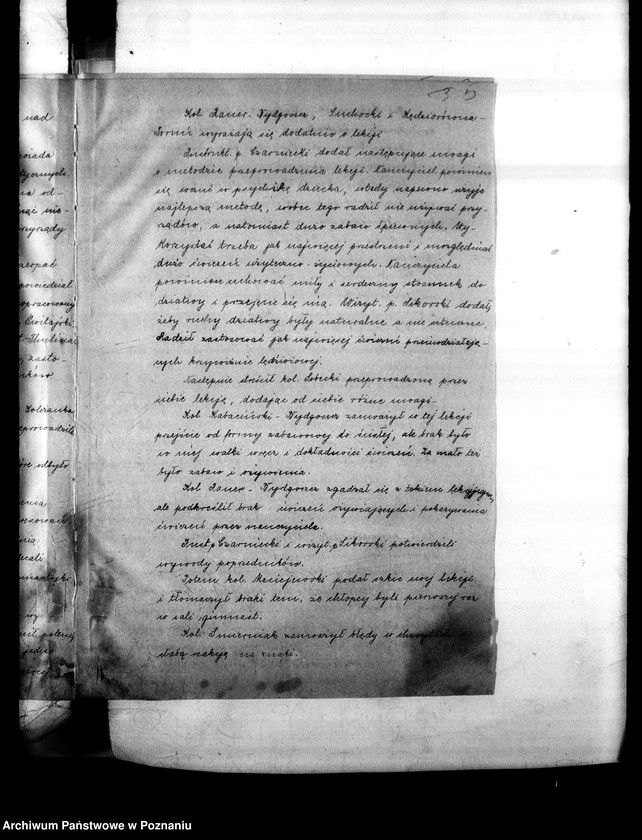 Kol. Zauer - Bydgoszcz, Suchocki i Kędziorówna -
Toruń wyrażają się dodatnio o lekcji
Instrukt. p. Czarniecki dodał następujące uwagi
o metodzie przeprowadzenia lekcji. Nauczyciel powinien
się wczuć w psychikę dziecka, wtedy napewno użyje
najlepszą metodę, wobec tego radził nie używać przy-
rządów, a natomiast dużo zabaw śpiewnych. Wy-
korzystać trzeba jak najwięcej przestrzeni i uwzględniać
dużo ćwiczeń użyteczno - życiowych. Nauczyciela
powinien cechować miły i serdeczny stosunek do
dziatwy i przejęcie się nią. Wizyt. p. Sikorski dodał,
żeby ruchy dziatwy były naturalne a nie sztuczne.
Radził zastosować jak najwięcej ćwiczeń przeciwdziałają-
cych krzywiźnie lędźwiowej.
Następnie streścił kol. Sobecki przeprowadzoną przez
siebie lekcję, dodając od siebie różne uwagi.
Kol. Kabaciński - Bydgoszcz zauważył w tej lekcji
przejście od formy zabawowej do ścisłej, ale brak było
w niej walki wręcz i dokładności ćwiczeń. Za mało też
było zabaw i ożywienia.
Kol. Zauer - Bydgoszcz zgadzał się z tokiem lekcyjnym,
ale podkreślił brak ćwiczeń ożywiających i pokazywania
ćwiczeń przez nauczyciela.
Inst. p. Czarniecki i wizyt. p. Sikorski potwierdzili
wywody poprzedników.
Potem kol. Maciejewski podał szkic swej lekcji
i tłomaczył braki tem, że chłopcy byli pierwszy raz
w sali gimnast.
Kol. Smierniak zauważył błędy w chwytach i
słabą reakcję na znaki.
Archiwum Państwowe w Poznaniu